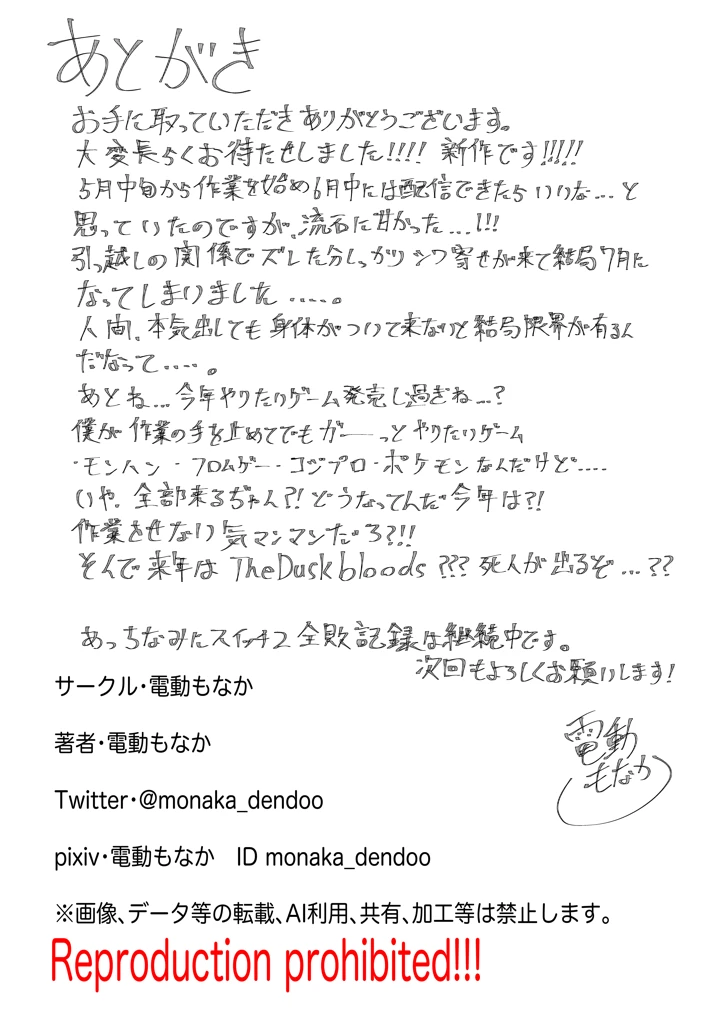 あとがき
お手に取っていただきありがとうございます。
大変長らくお待たせしました!!!! 新作です!!!!!
5月中旬から作業を始め6月中には配信できたらいいな...と
思っていたのですが、流石に甘かった...!!!
引っ越しの関係でズレた分しっかりシワ寄せが来て結局7月に
なってしまいました.....。
人間、本気出しても身体がついて来ないと結局限界が有るん
だなって.....。
あとね...今年やりたいゲーム発売し過ぎね...?
僕が作業の手を止めてでもガーーっとやりたいゲーム
・モンハン・フロムゲー・コジプロ・ポケモンなんだけど....
いや、全部来るぢゃん?! どうなってんだ今年は?!
作業させない気マンマンだろ?!!
そんで来年は TheDuskbloods ??? 死人が出るぞ...??
あっちなみにスイッチ2全敗記録は継続中です。
次回もよろしくお願いします!
サークル・電動もなか
電動
もなか
著者・電動もなか
Twitter・@monaka_dendoo
pixiv・電動もなか ID monaka_dendoo
※画像、データ等の転載、AI利用、共有、加工等は禁止します。
Reproduction prohibited!!!